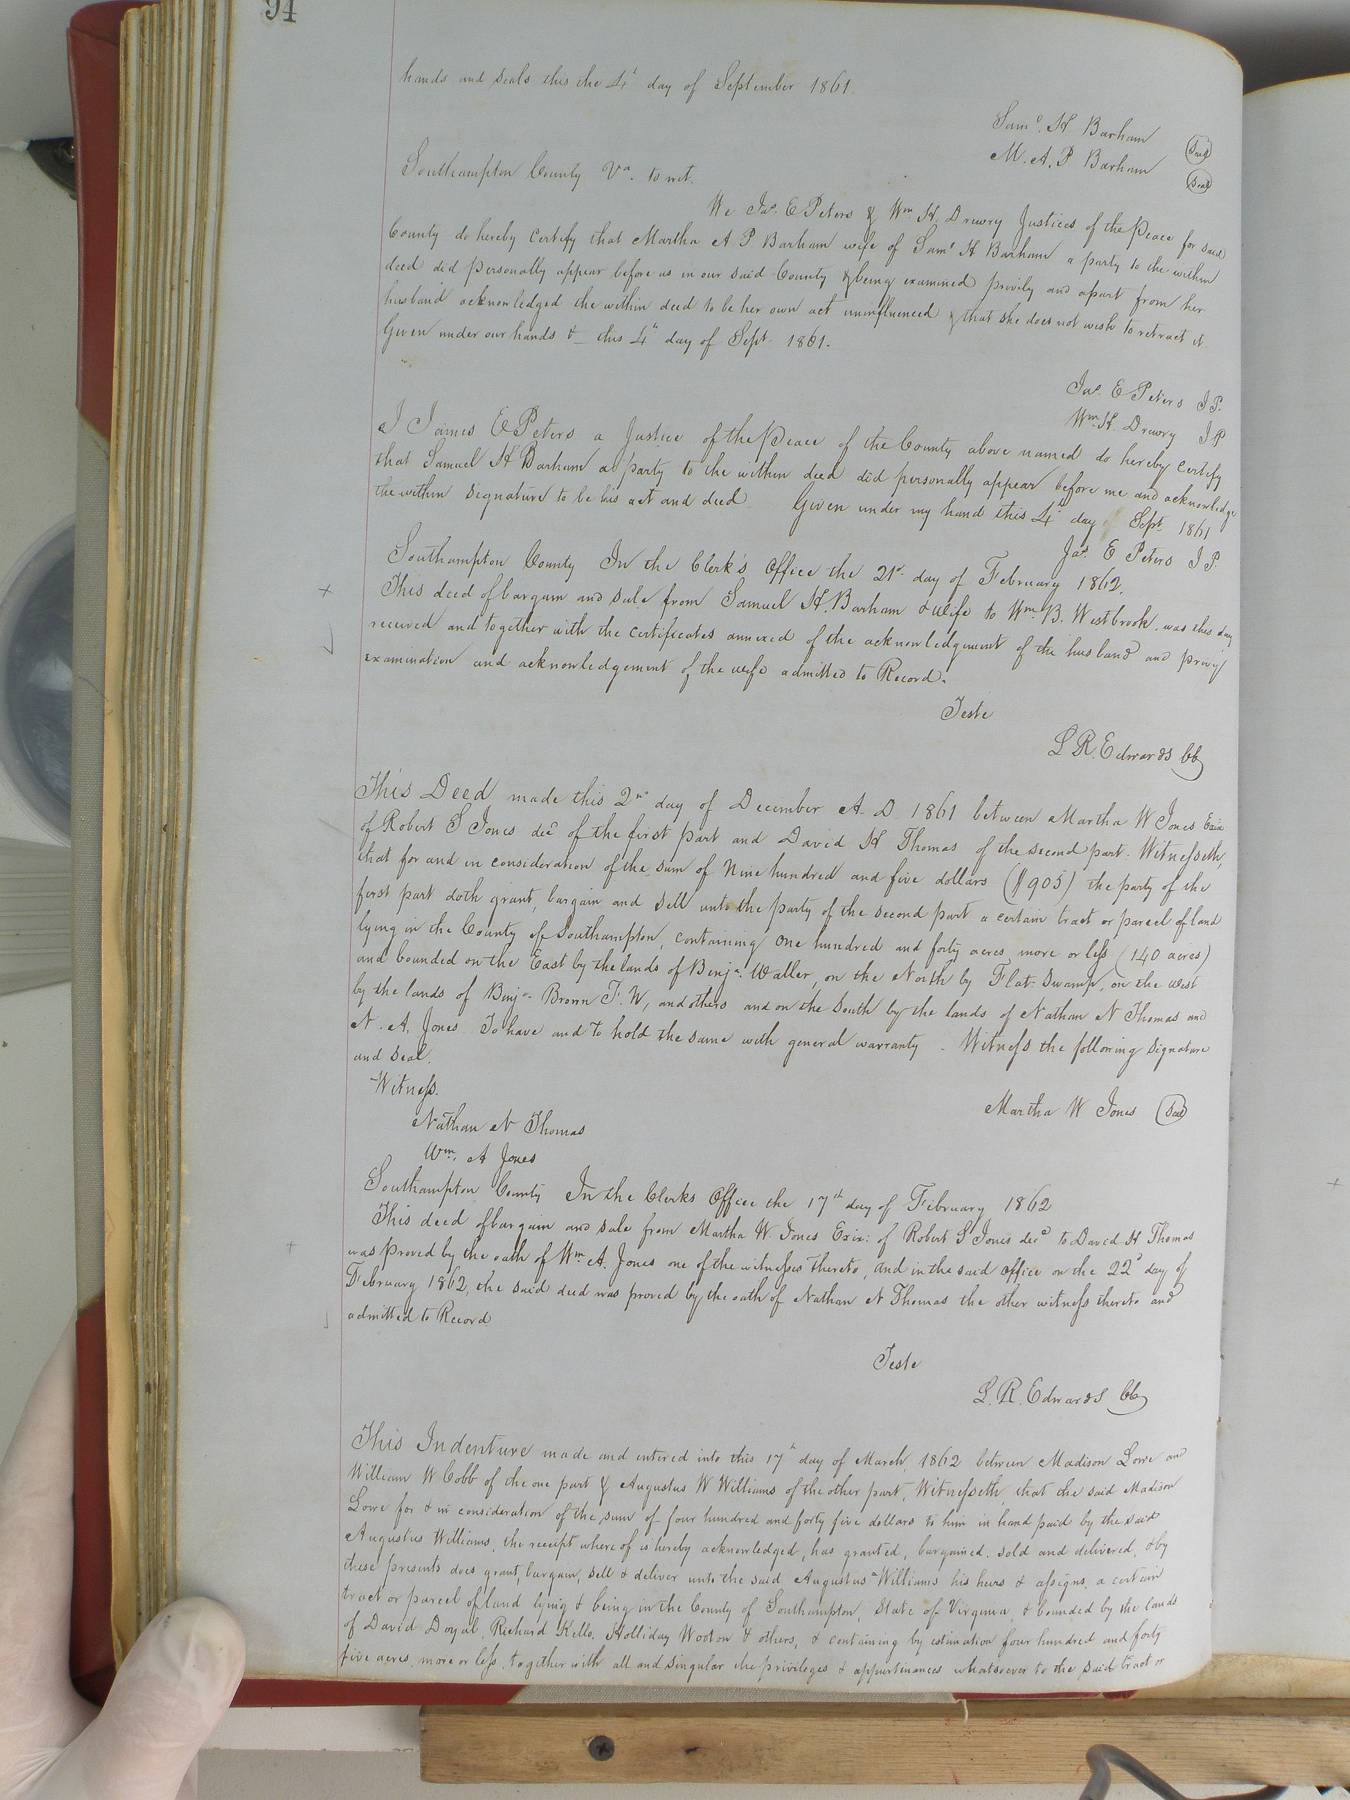 94
hands and seals this the 4th day of September 1861.
Saml. H Barham Seal
M. A. P Barham Seal
Southampton County Va. to wit.
We Jas. E Peters & Wm H. Drewry Justices of the Peace for said
County do hereby certify that Martha A P Barham wife of Saml H Barham a party to the within
deed did personally appear before us in our said County & being examined privily and apart from her
husband acknowledged the within deed to be her own act uninfluenced & that she does not wish to retract it.
Given under our hands &_ this 4th day of Sept. 1861.
Jas. E Peters J P.
Wm. H Drewry J P
I James E Peters a Justice of the Peace of the County above named do hereby certify
that Samuel H Barham a party to the within deed did personally appear before me and acknowledge
the within signature to be his act and deed. Given under my hand this 4th day Sept. 1861
Jas. E Peters J P.
Southampton County In the Clerk's Office the 21st day of February 1862.
This deed of bargain and sale from Samuel H. Barham & wife to Wm. B. Westbrook was this day
received and together with the certificates annexed of the acknowledgement of the husband and privy
examination and acknowledgement of the wife admitted to Record.
Teste
L R. Edwards CC
This Deed made this 2nd day of December A. D. 1861 between Martha W Jones Exix
of Robert S Jones decd of the first part and David H Thomas of the second part. Witnesseth,
that for and in consideration of the sum of Nine hundred and five dollars ($905) the party of the
first part doth grant, bargain and sell unto the party of the second part a certain tract or parcel of land
lying in the County of Southampton, containing One hundred and forty acres more or less (140 acres)
and bounded on the East by the lands of Benja. Waller, on the North by Flat Swamp, on the West
by the lands of Benja. Brown F. W, and others and on the South by the lands of Nathan N Thomas and
N. A. Jones To have and to hold the same with general warranty. Witness the following signature
and seal.
Witness.
Martha W Jones Seal
Nathan N Thomas
Wm. A Jones
Southampton County In the Clerks Office the 17th day of February 1862
This deed of bargain and sale from Martha W. Jones Exix: of Robert S Jones decd to David H Thomas
was proved by the oath of Wm A. Jones one of the witnesses thereto, and in the said office on the 22d day of
February 1862, the said deed was proved by the oath of Nathan N Thomas the other witness thereto and
admitted to Record
Teste
L. R. Edwards CC
This Indenture made and entered into this 17th day of March, 1862 between Madison Lowe and
William W Cobb of the one part & Augustus W Williams of the other part, Witnesseth, that the said Madison
Lowe for & in consideration of the sum of four hundred and forty five dollars to him in hand paid by the said
Augustus Williams, the receipt where of is hereby acknowledged, has granted, bargained, sold and delivered, & by
these presents does grant, bargain, sell & deliver unto the said Augustus Williams his heirs & assigns, a certain
tract or parcel of land lying & being in the County of Southampton, State of Virginia, & bounded by the lands
of David Doyal, Richard Kello, Holliday Wooton & others, & containing by estimation four hundred and forty
five acres, more or less, together with all and singular the privileges & appurtenances whatsoever to the said tract or